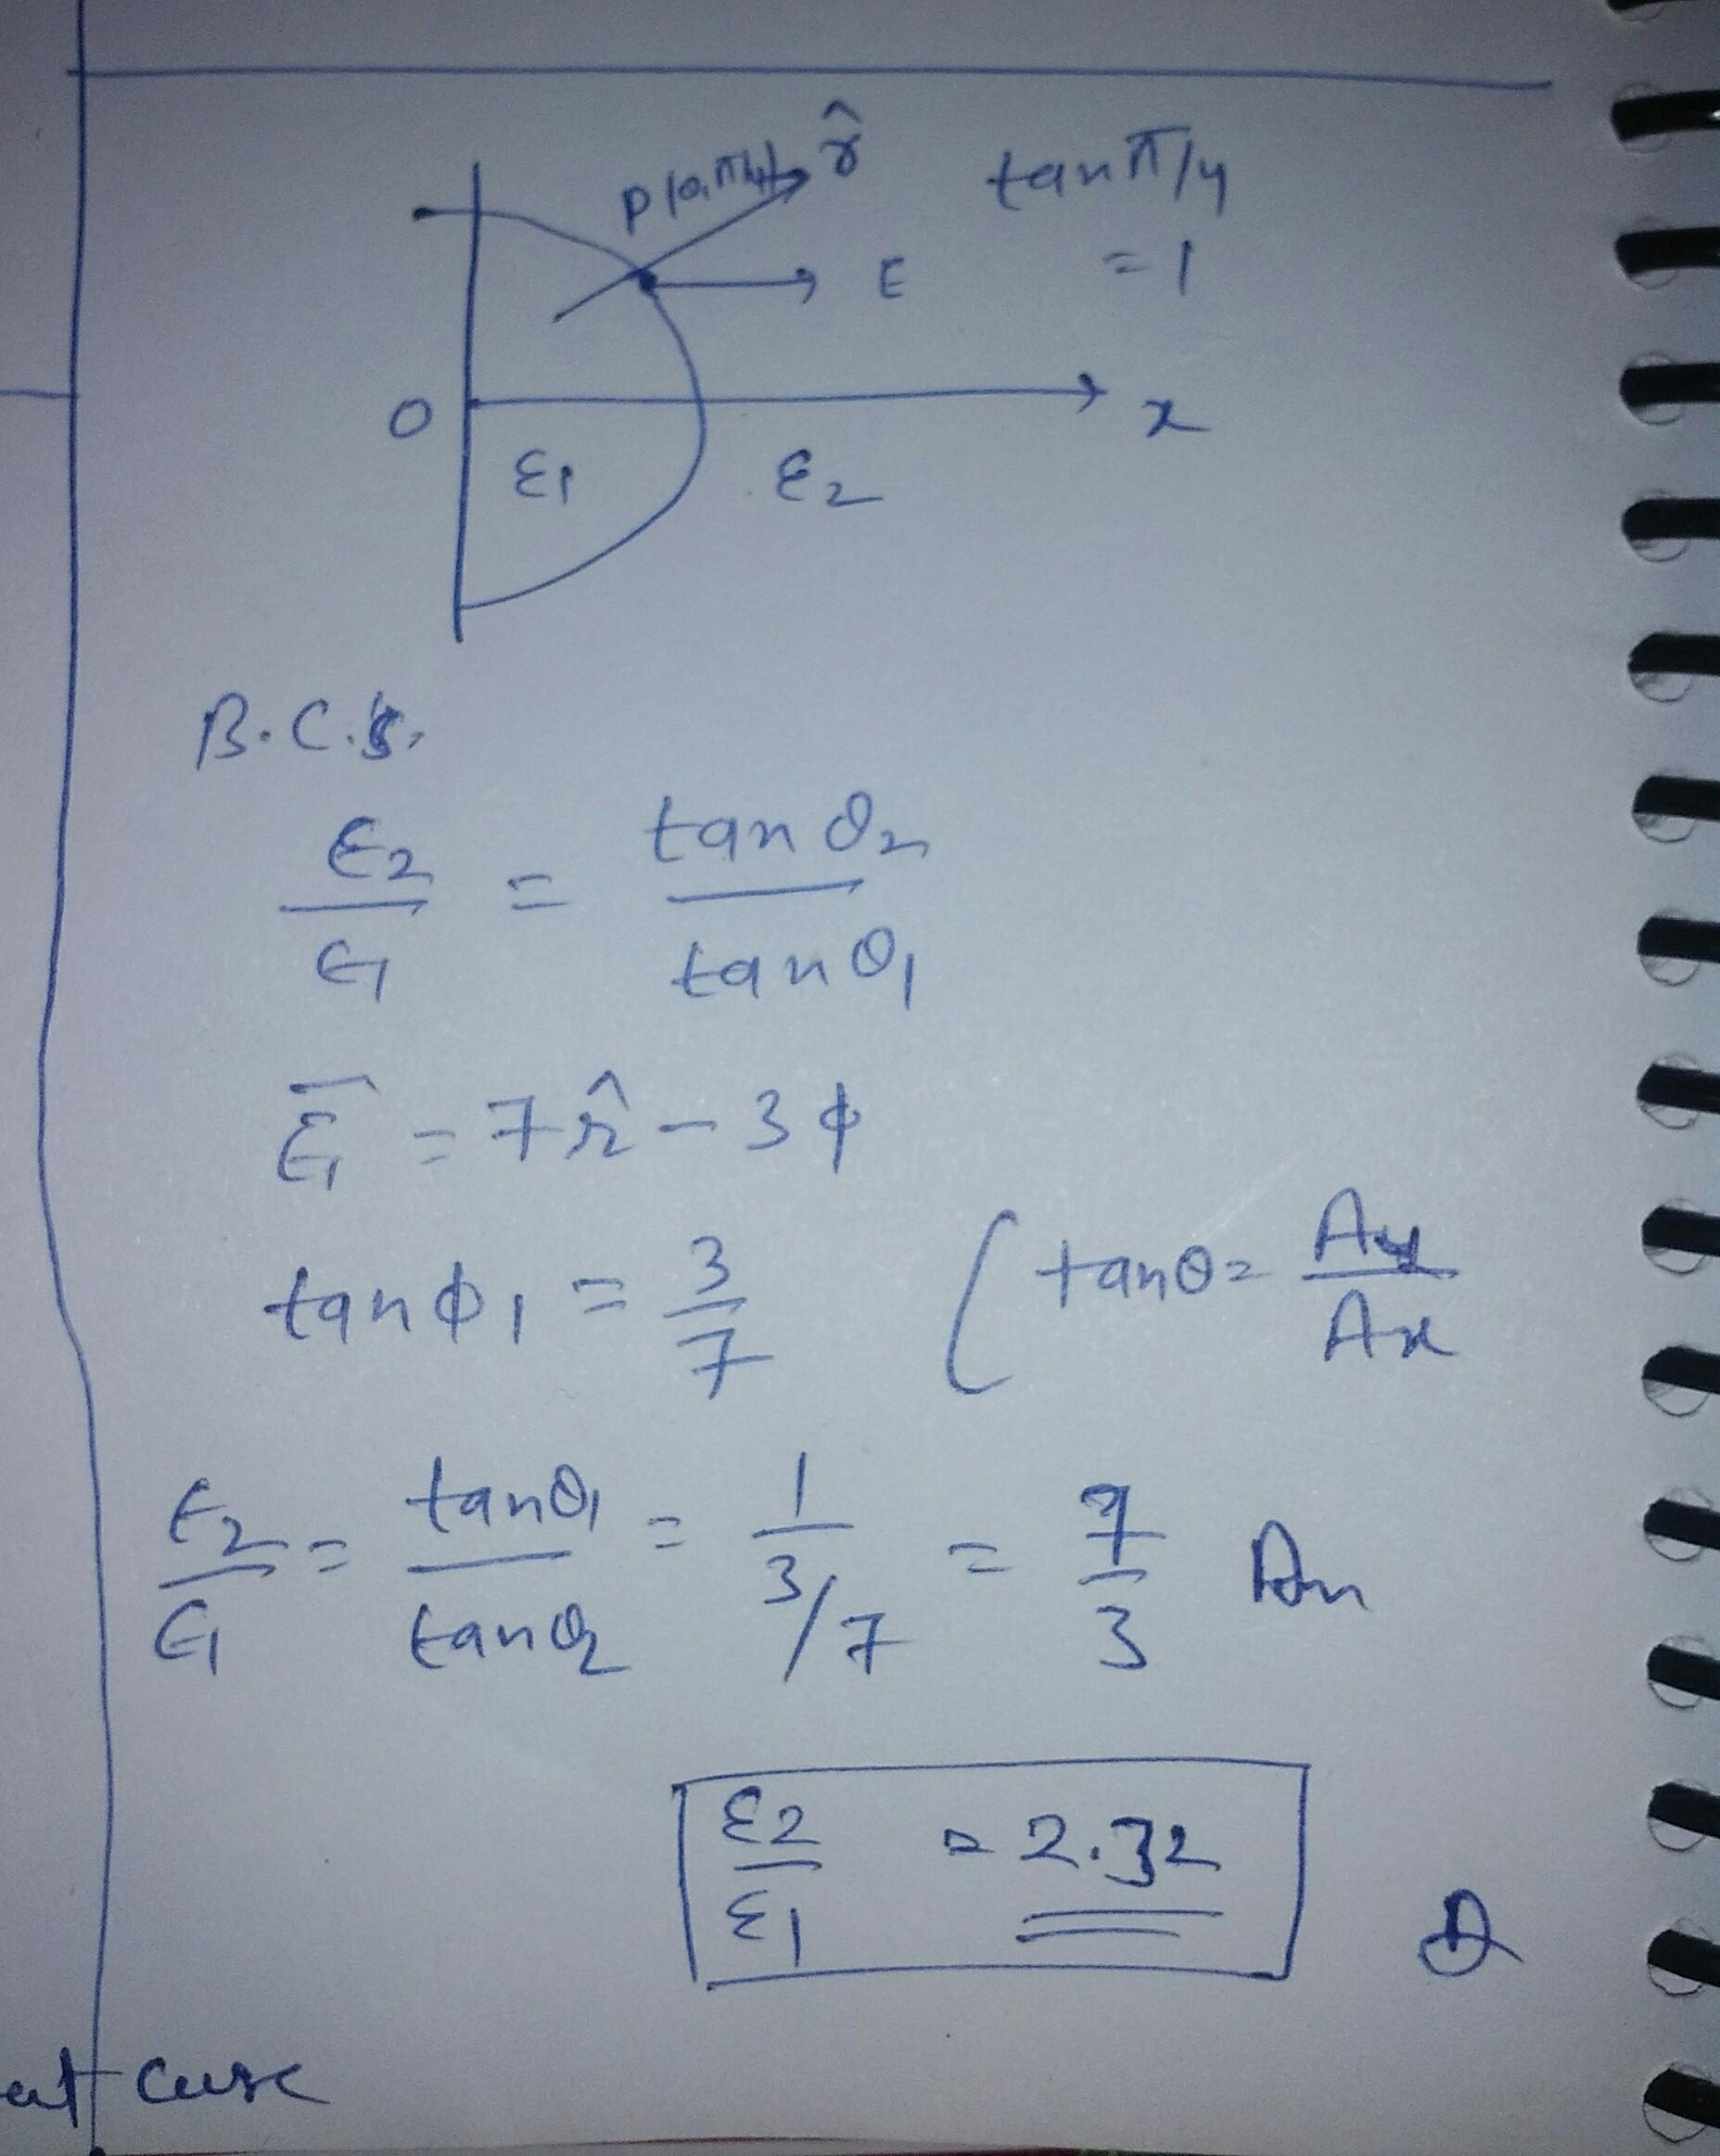 P(a,π/4) r̂ tan π/4
E = 1
O x
ε1 ε2
B.C.s.
ε2/ε1 = tan θ2/tan θ1
E̅1 = 7r̂ - 3ϕ
tan ϕ1 = 3/7 ( tan θ = Ay/Ax
ε2/ε1 = tan θ1/tan θ2 = 1/3/7 = 7/3 An
ε2/ε1 = 2.32
at case